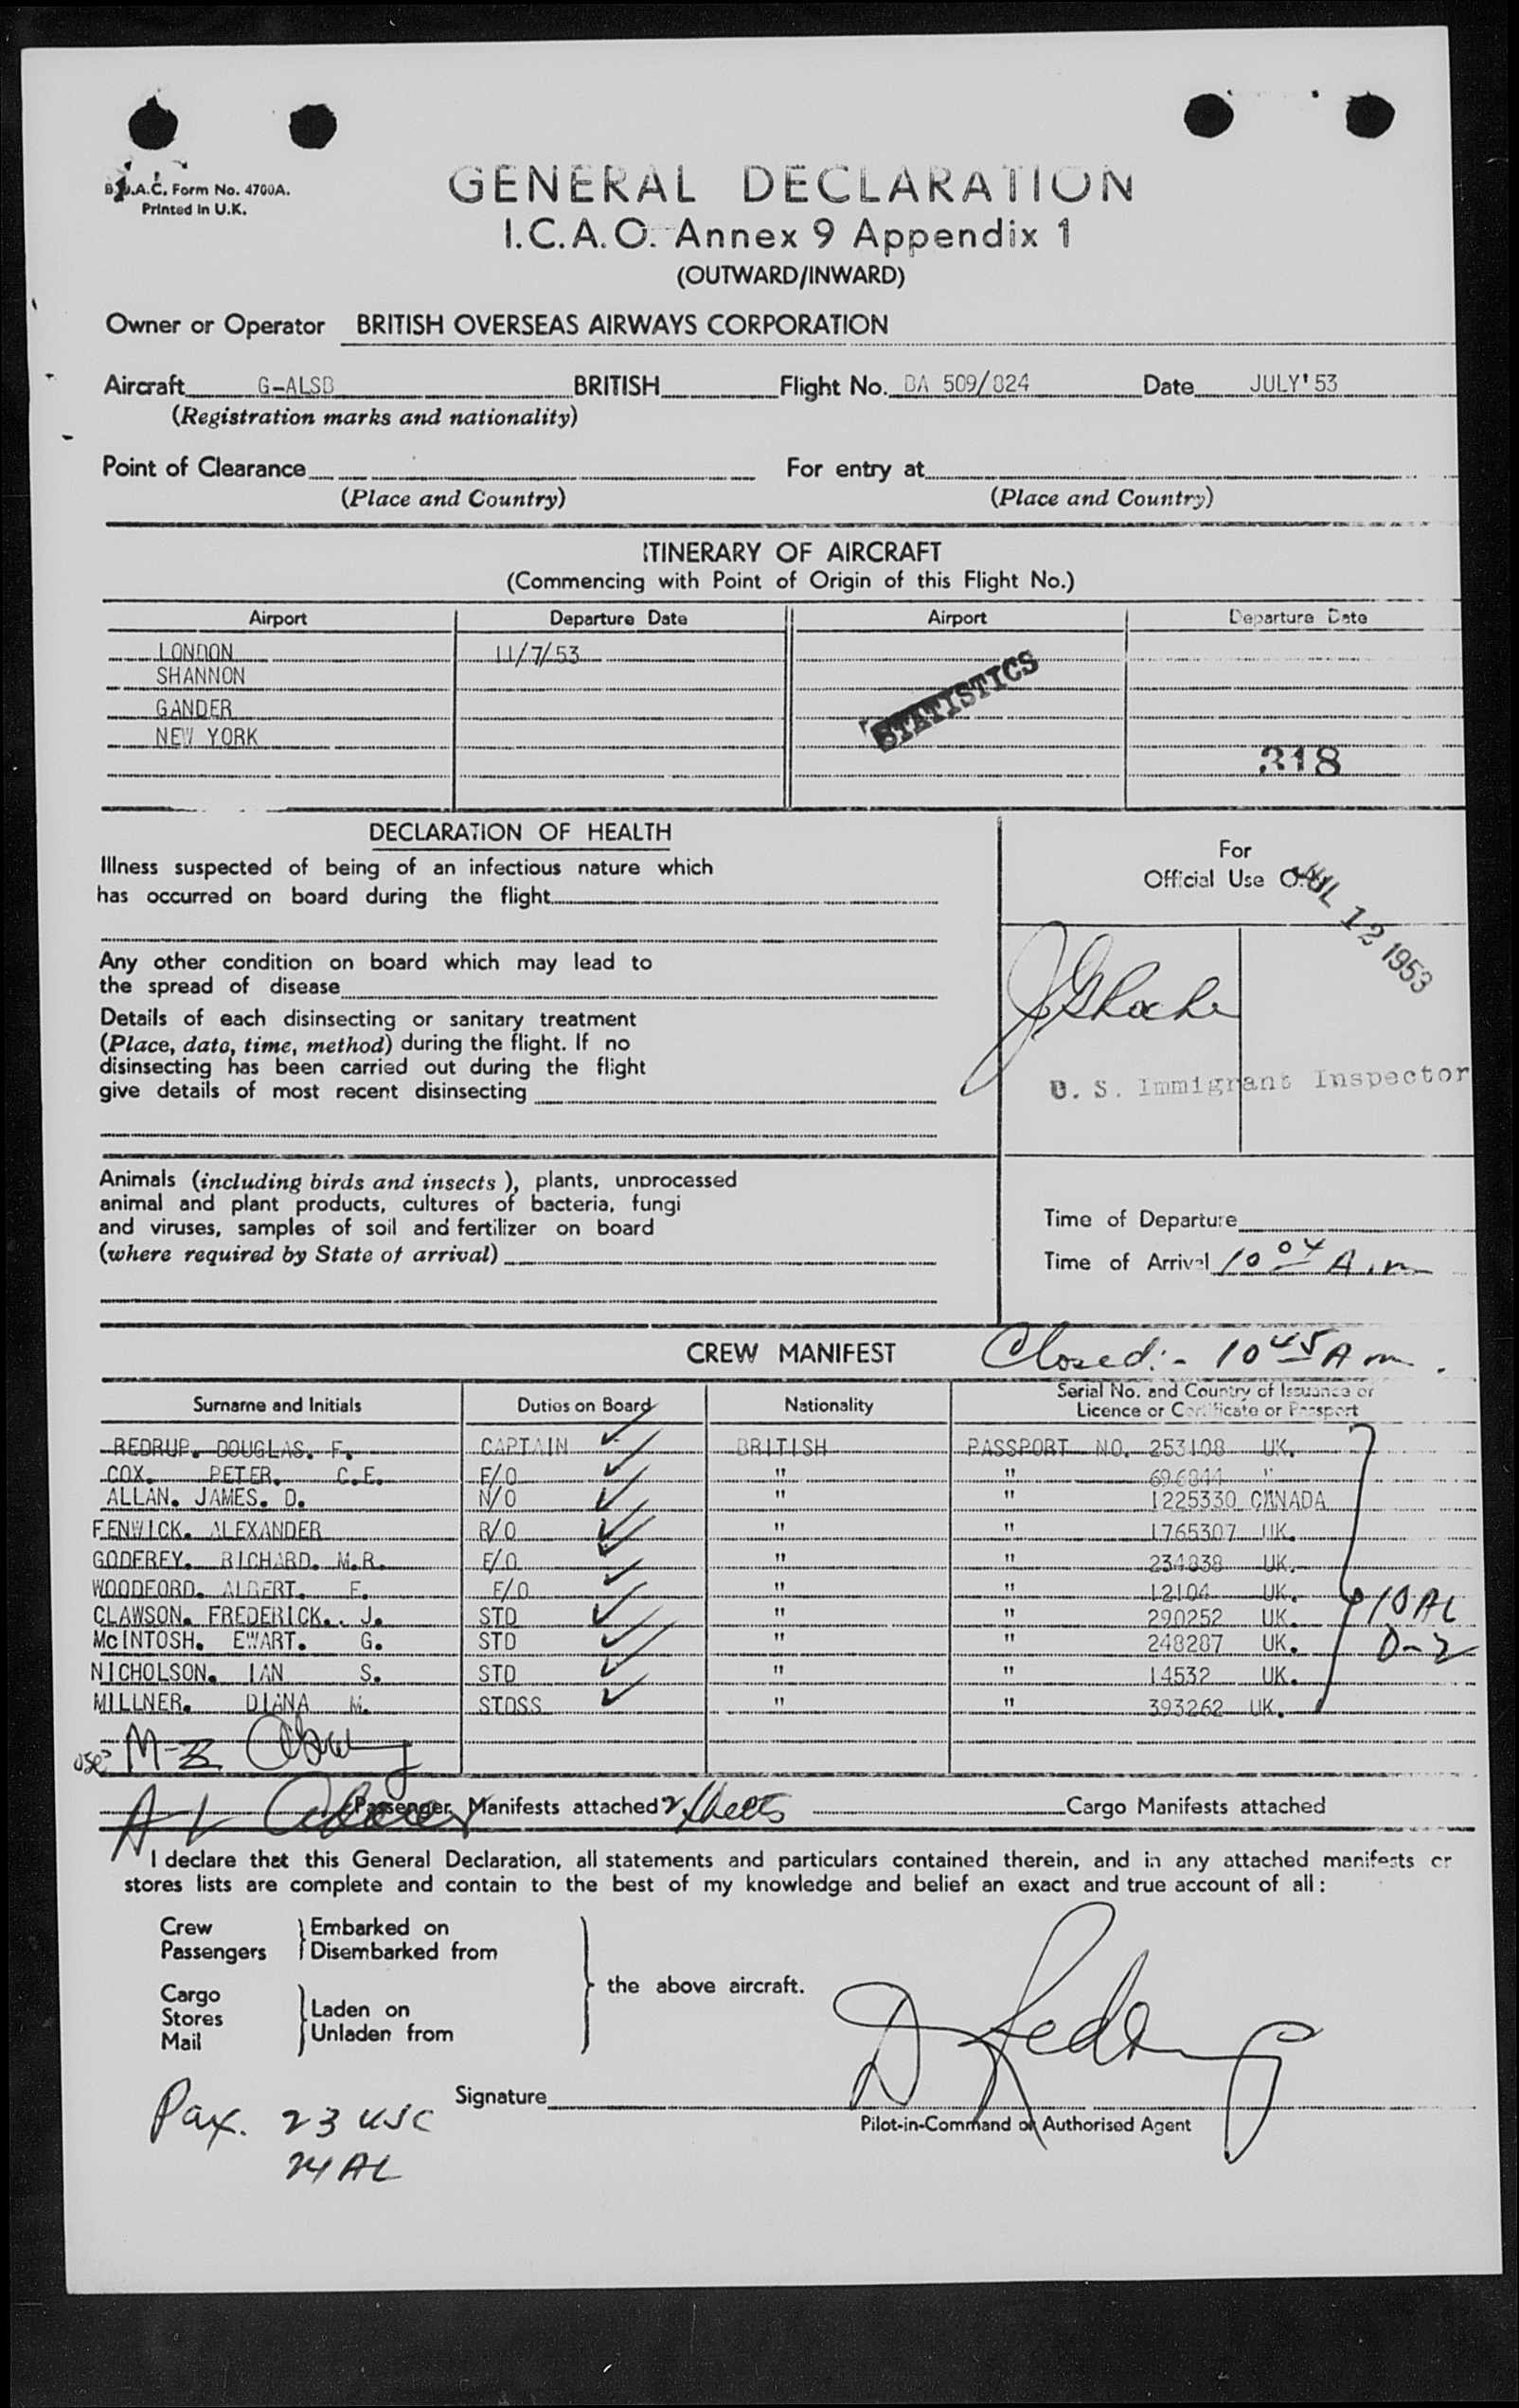 B.O.A.C. Form No. 4700A.
Printed in U.K.
GENERAL DECLARATION
I.C.A.O. Annex 9 Appendix 1
(OUTWARD/INWARD)
Owner or Operator BRITISH OVERSEAS AIRWAYS CORPORATION
Aircraft G-ALSB BRITISH Flight No. BA 509/824 Date JULY'53
(Registration marks and nationality)
Point of Clearance For entry at
(Place and Country) (Place and Country)
ITINERARY OF AIRCRAFT
(Commencing with Point of Origin of this Flight No.)
Airport Departure Date Airport Departure Date
LONDON 11/7/53
SHANNON
GANDER
NEW YORK
STATISTICS
318
DECLARATION OF HEALTH
Illness suspected of being of an infectious nature which
has occurred on board during the flight
Any other condition on board which may lead to
the spread of disease
Details of each disinsecting or sanitary treatment
(Place, date, time, method) during the flight. If no
disinsecting has been carried out during the flight
give details of most recent disinsecting
Animals (including birds and insects ), plants, unprocessed
animal and plant products, cultures of bacteria, fungi
and viruses, samples of soil and fertilizer on board
(where required by State of arrival)
For
Official Use
JUL 12 1953
U. S. Immigrant Inspector
Time of Departure
Time of Arrival 10 04 A.m
CREW MANIFEST Closed:- 10 45 Am.
Surname and Initials Duties on Board Nationality Serial No. and Country of Issuance or
Licence or Certificate or Passport
REDRUP. DOUGLAS. F. CAPTAIN BRITISH PASSPORT NO. 253108 UK.
COX. PETER. C.E. F/O " " "
ALLAN. JAMES. D. N/O " " 1225330 CANADA
FENWICK. ALEXANDER R/O " " 1765307 UK.
GODFREY. RICHARD. M.R. E/O " " 234838 UK.
WOODFORD. ALBERT. F. E/O " " 12104 UK.
CLAWSON. FREDERICK.. J. STD " " 290252 UK.
McINTOSH. EWART. G. STD " " 248287 UK.
NICHOLSON. IAN S. STD " " 14532 UK.
MILLNER. DIANA M. STDSS " " 393262 UK.
10 AL
D-2
Passenger Manifests attached 2 sheets Cargo Manifests attached
I declare that this General Declaration, all statements and particulars contained therein, and in any attached manifests or
stores lists are complete and contain to the best of my knowledge and belief an exact and true account of all :
Crew Embarked on
Passengers Disembarked from
the above aircraft.
Cargo
Stores Laden on
Mail Unladen from
D Redrup
Signature
Pilot-in-Command or Authorised Agent
Pax. 23 USC
24 AL